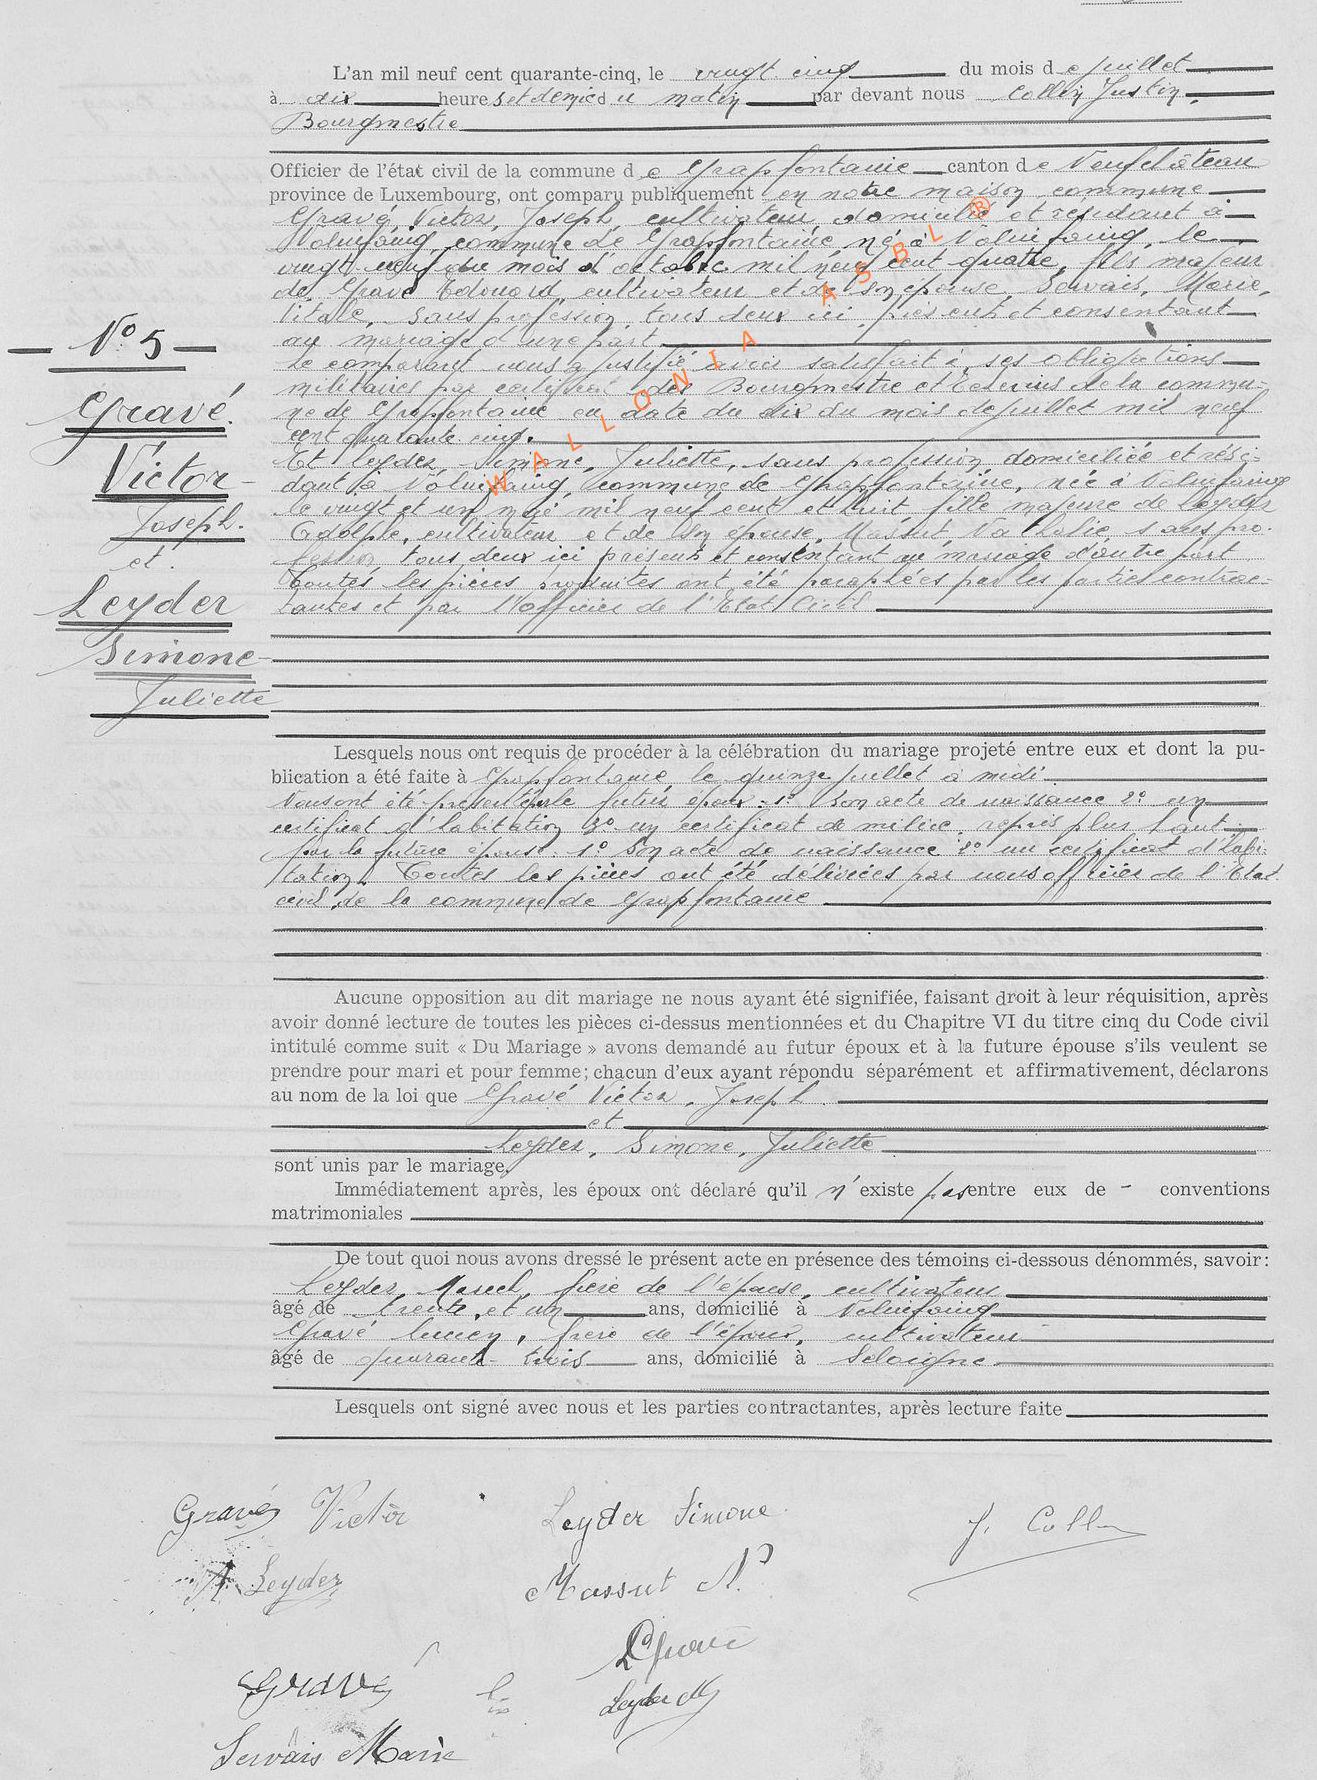 L'an mil neuf cent quarante-cinq, le vingt cinq du mois de juillet
à dix heures et demie du matin par devant nous Collin Justin,
Bourgmestre
Officier de l'état civil de la commune de Grapfontaine canton de Neufchâteau
province de Luxembourg, ont comparu publiquement en notre maison commune
Gravé, Victor, Joseph, cultivateur, domicilié et résidant à
Nolinfaing, commune de Grapfontaine né à Nolinfaing, le
vingt neuf du mois d'octobre mil neuf cent quatre, fils majeur
de Gravé Edouard, cultivateur et de son épouse, Servais, Marie,
sans profession, tous deux ici présents et consentant
au mariage d'une part
Le comparant nous a justifié avoir satisfait à ses obligations
militaires par certificat des Bourgmestre et Echevins de la commu-
ne de Grapfontaine en date du dix du mois de juillet mil neuf
cent quarante cinq.
Et Leyder, Simone, Juliette, sans profession domiciliée et rési-
dant à Nolinfaing, commune de Grapfontaine, née à Nolinfaing
le vingt et un mai mil neuf cent et huit fille majeure de Leyder
Adolphe, cultivateur et de son épouse, Massut Nathalie, sans pro-
fession, tous deux ici présents et consentant au mariage d'autre part
Toutes les pièces produites ont été paraphées par les parties contrac-
tantes et par l'officier de l'Etat Civil
N° 5
Gravé
Victor
Joseph.
et.
Leyder
Simone
Juliette
Lesquels nous ont requis de procéder à la célébration du mariage projeté entre eux et dont la pu-
blication a été faite à Grapfontaine le quinze juillet à midi
Nous ont été présentés par le futur époux : 1° son acte de naissance 2° un
certificat d'habitation 3° un certificat de milice, repris plus haut
par la future épouse. 1° son acte de naissance 2° un certificat d'habi-
tation. Toutes les pièces ont été délivrées par nous officier de l'Etat
civil de la commune de Grapfontaine
Aucune opposition au dit mariage ne nous ayant été signifiée, faisant droit à leur réquisition, après
avoir donné lecture de toutes les pièces ci-dessus mentionnées et du Chapitre VI du titre cinq du Code civil
intitulé comme suit « Du Mariage » avons demandé au futur époux et à la future épouse s'ils veulent se
prendre pour mari et pour femme; chacun d'eux ayant répondu séparément et affirmativement, déclarons
au nom de la loi que Gravé Victor, Joseph.
et
Leyder, Simone, Juliette
sont unis par le mariage.
Immédiatement après, les époux ont déclaré qu'il n'existe pas entre eux de - conventions
matrimoniales
De tout quoi nous avons dressé le présent acte en présence des témoins ci-dessous dénommés, savoir:
Leyder, Marcel, frère de l'épouse, cultivateur
âgé de trente et un ans, domicilié à Nolinfaing
Gravé Lucien, frère de l'époux, cultivateur
âgé de quarante-trois ans, domicilié à
Lesquels ont signé avec nous et les parties contractantes, après lecture faite
Gravé Victor Leyder Simone J. Collin
A. Leyder Massut N.
Gravé
Gravé
Leyder M
Servais Marie
WALLONIA ASBL ®